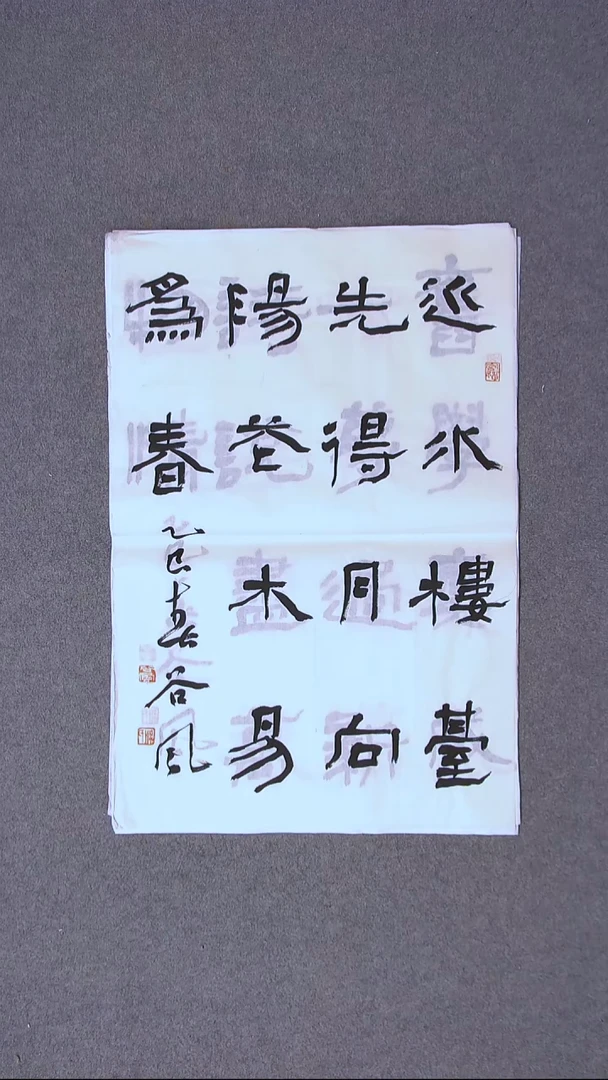 近水樓臺
先得月向
陽花木易
爲春
乙巳春谷风